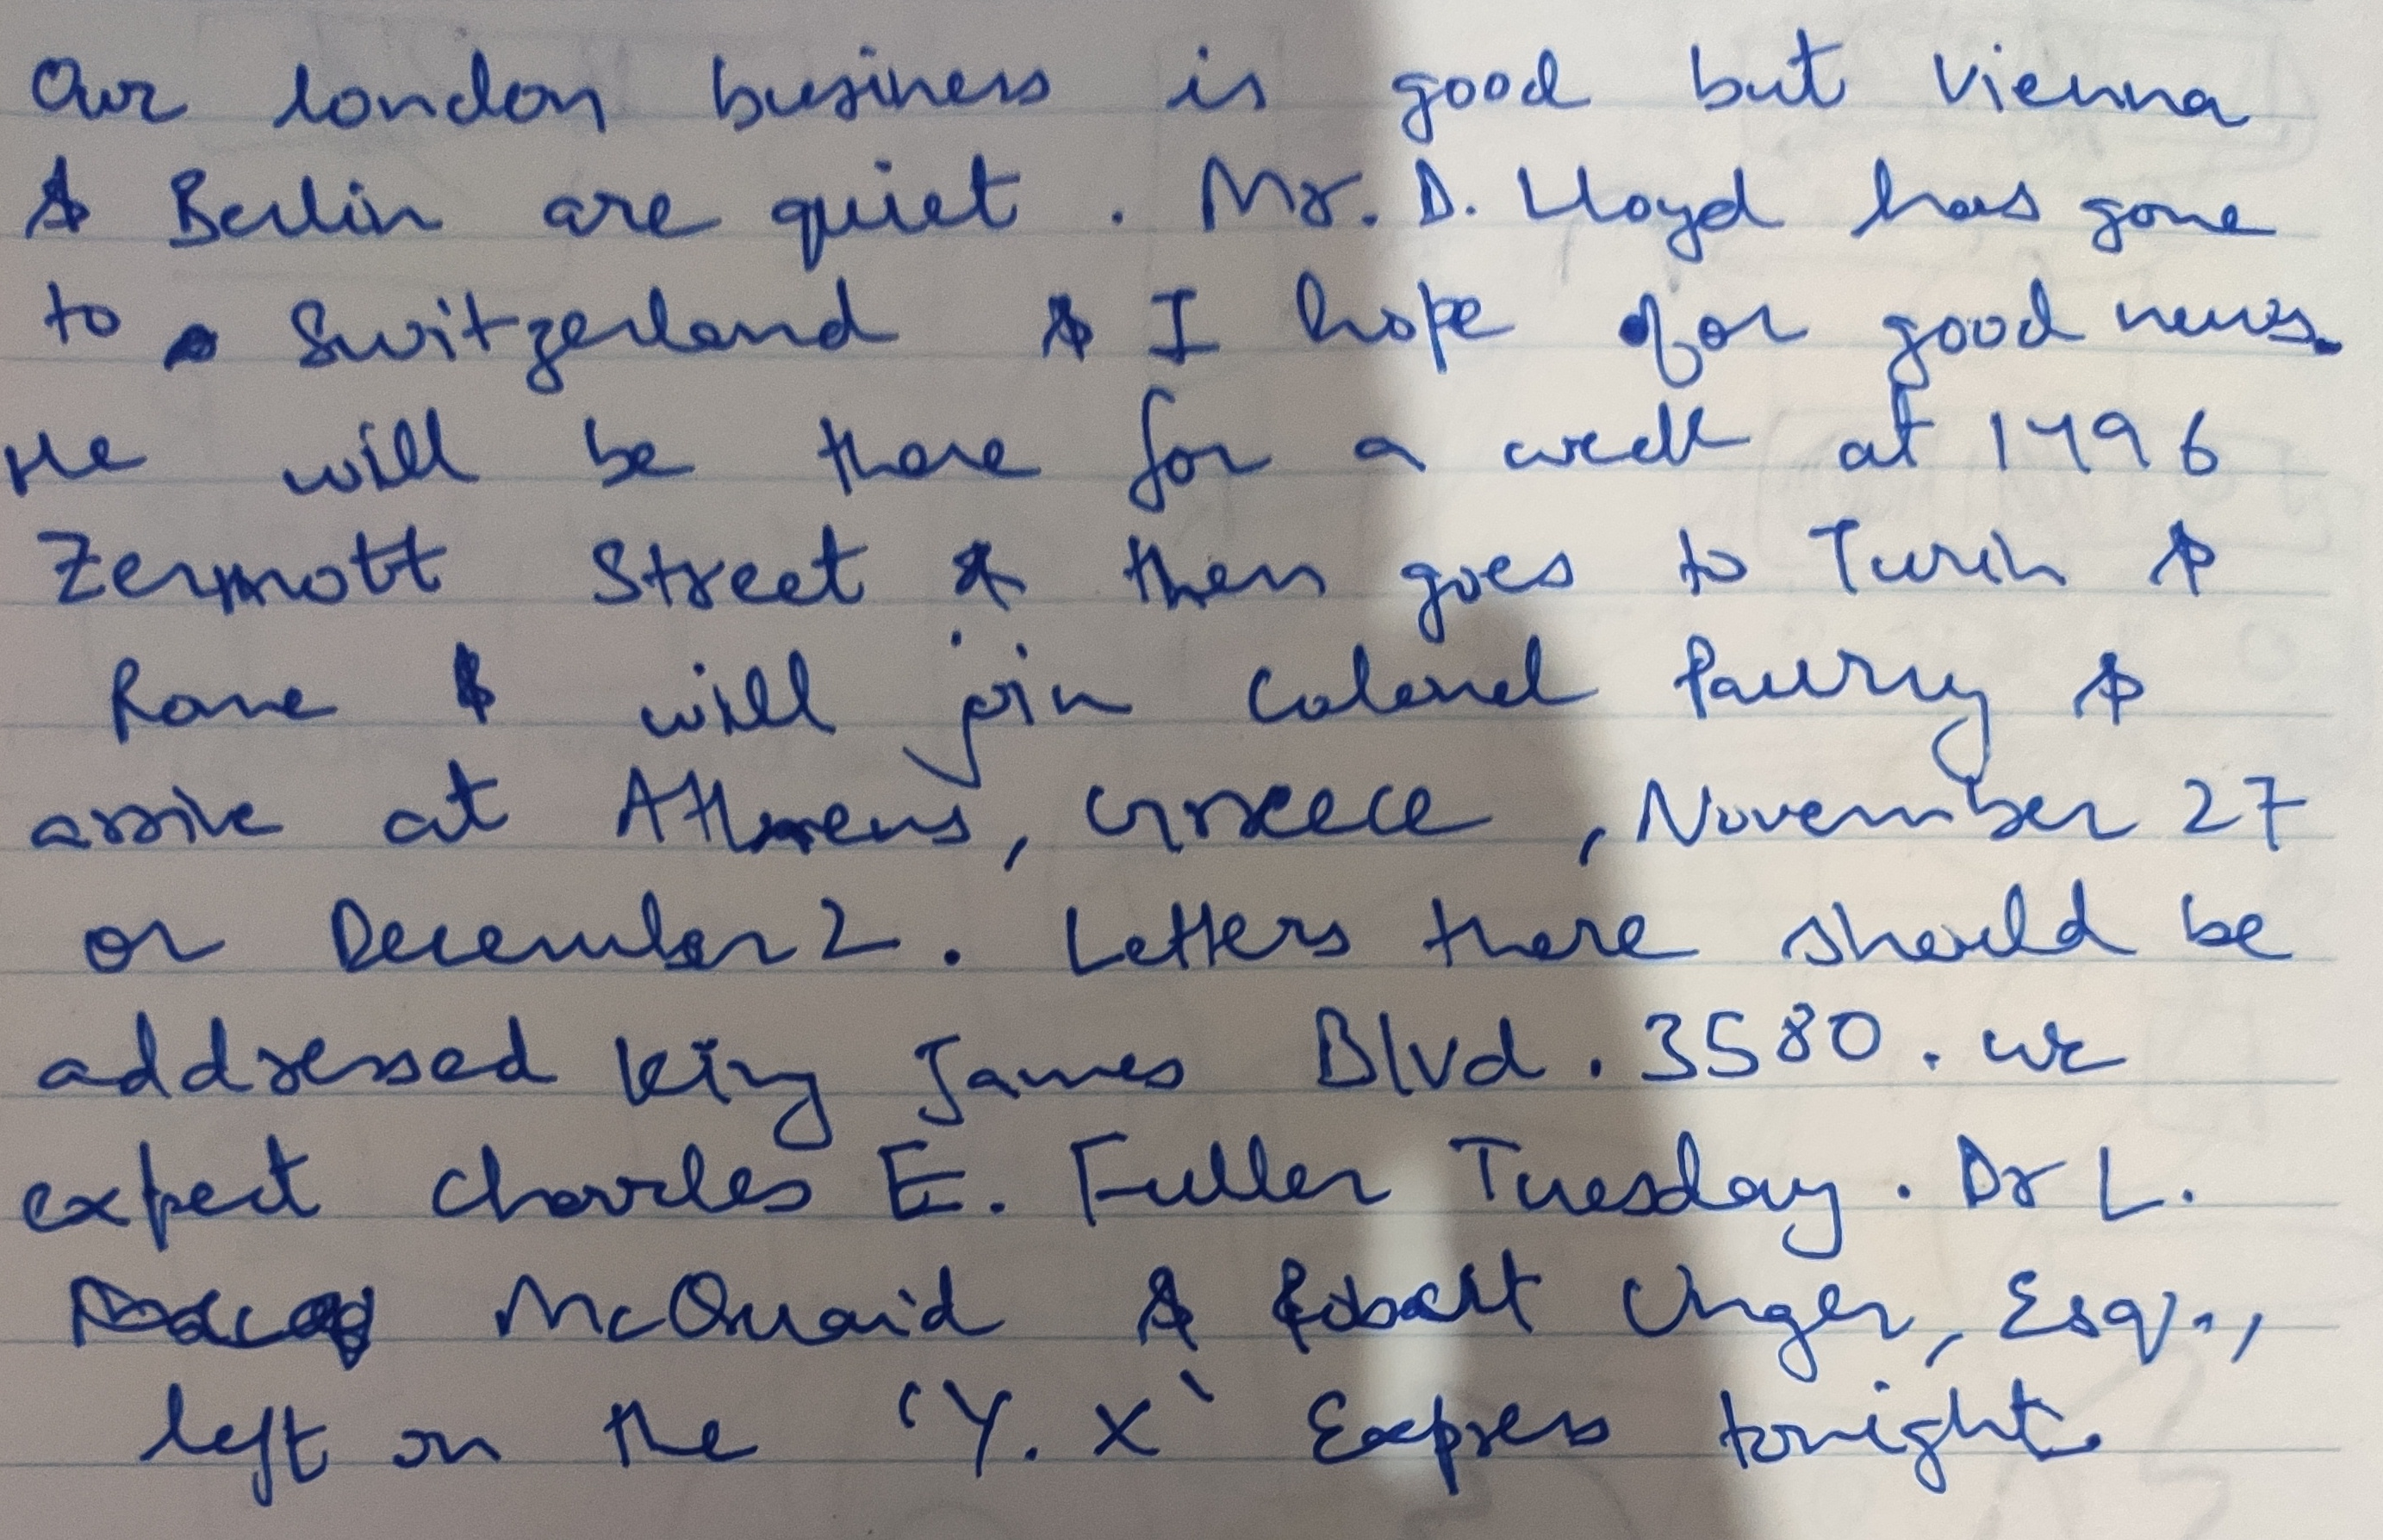 Our london business is good but Vienna
& Berlin are quiet . Mr. D. Lloyd has gone
to Switzerland & I hope for good news.
He will be there for a week at 1496
Zermott Street & then goes to Turin &
Rome & will join Colonel Parry &
arrive at Athens, Greece , November 27
or December 2 . Letters there should be
addressed King James Blvd . 3580 . we
expect Charles E. Fuller Tuesday . Dr L.
McQuaid & Robert Unger, Esq.,
left on the 'Y. X' Express tonight.